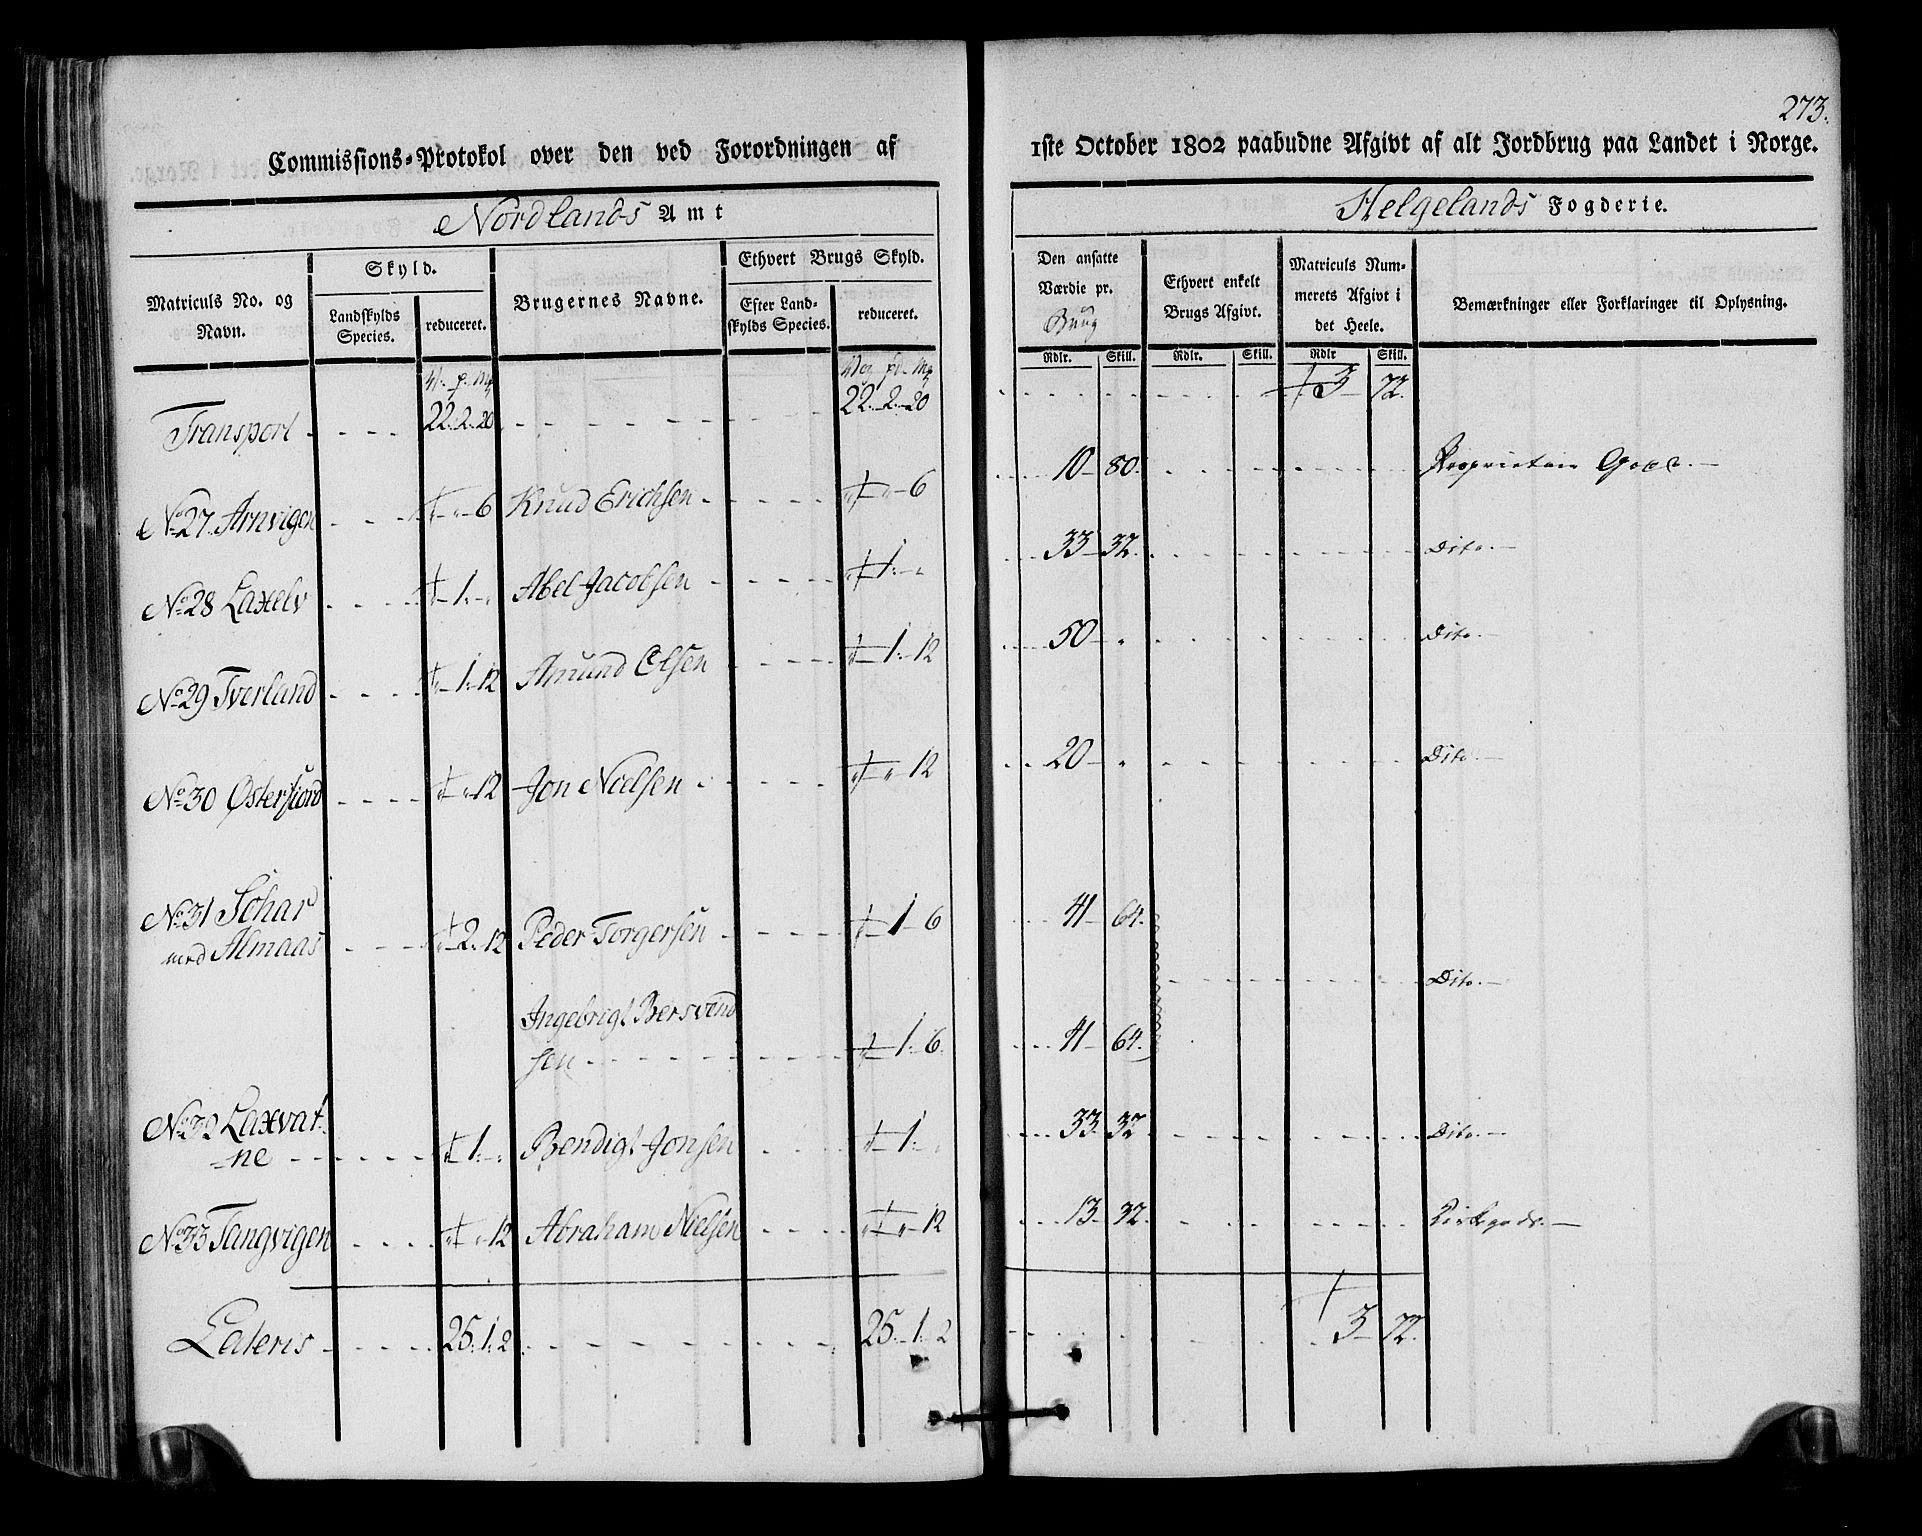 273.
Commissions-Protokol over den ved Forordningen af 1ste October 1802 paabudne Afgivt af alt Jordbrug paa Landet i Norge.
Nordlands Amt
Helgelands Fogderie.
Matriculs No. og Navn.
Skyld.
Landskylds Species.
reduceret.
Brugernes Navne.
Ethvert Brugs Skyld.
Efter Landskylds Species.
reduceret.
Den ansatte Værdie pr. Brug
Ethvert enkelt Brugs Afgivt.
Matriculs Nummerets Afgivt i det Heele.
Bemærkninger eller Forklaringer til Oplysning.
Rdlr. Skill. Rdlr. Skill. Rdlr Skill.
Transport 22. 2. 20 22. 2. 20 3 72.
No 27 Arnvigen 6 Knud Erichsen 6 10 80. Proprietair Gods.
No 28 Laxelv 1. Abel Jacobsen 1. 33 32. Dito.
No 29 Tverland 1. 12 Amund Olsen 1. 12 50 Dito.
No 30 Østerfiord 12 Jon Nielsen 12 20 Dito.
No 31 Sohar
med Almaas 2. 12 Peder Torgersen 1 6 41 64.
Dito.
Ingebrigt Bersvend
sen 1. 6. 41 64.
No 32 Laxvat
ne 1. Bendigt Jonsen 1. 33 32 Dito.
No 33 Tangvigen 12 Abraham Nielsen 12 13 32. Kirkegods.
Lateris 25. 1. 2 25. 1. 2 3 72.